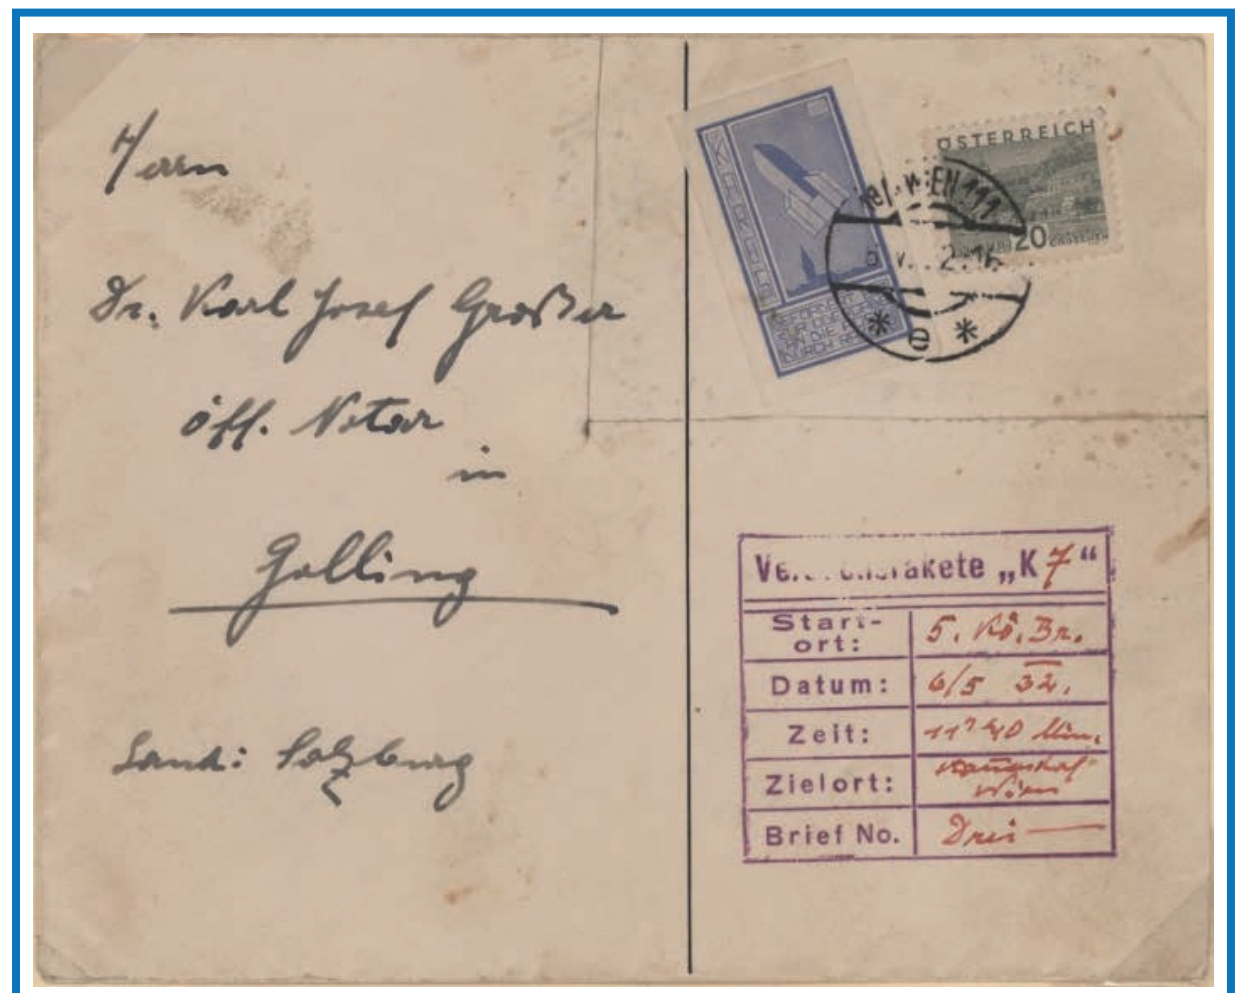 Herrn
Dr. Karl Josef
öff. Notar
in
Golling
Land: Salzburg
ÖSTERREICH
20
WIEN 111
e
"K 7"
Start-
ort: 5. Kö. Br.
Datum: 6/5 32.
Zeit: 11h 40 Min.
Zielort:
Wien
Brief No. Drei